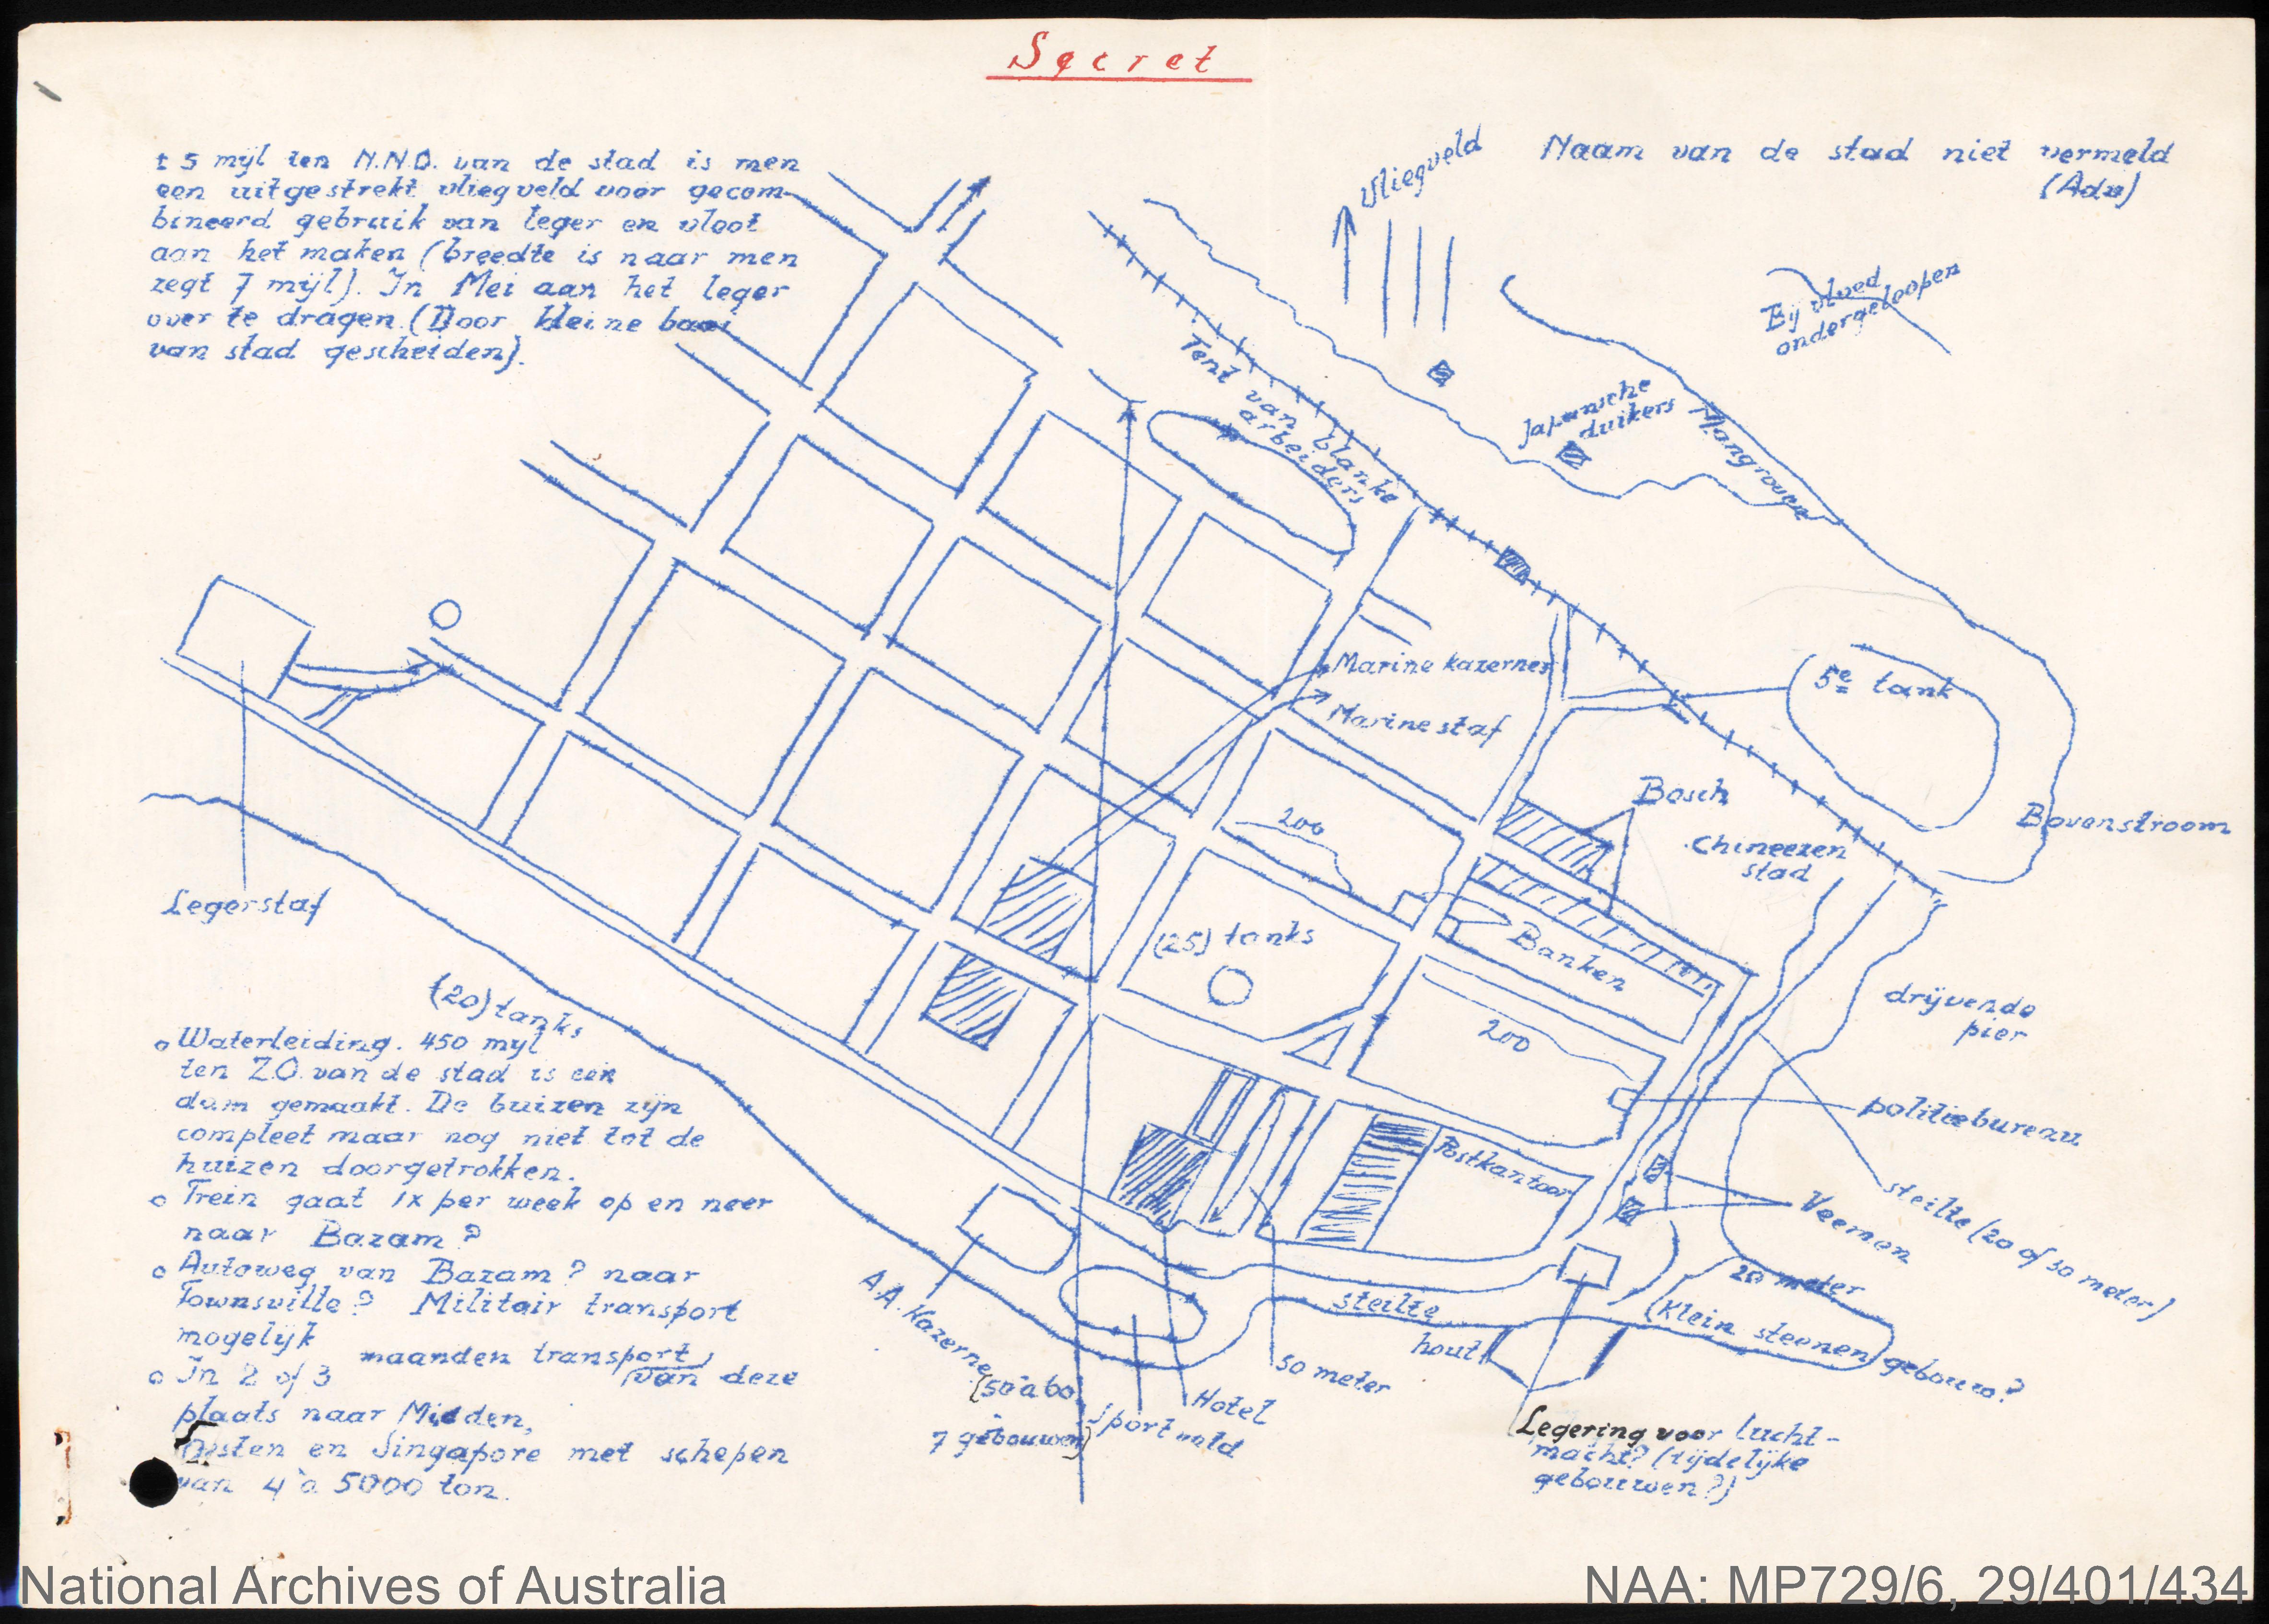 Secret
± 5 mijl ten N.N.O. van de stad is men
een uitgestrekt vliegveld voor gecom-
bineerd gebruik van leger en vloot
aan het maken (breedte is naar men
zegt 7 mijl). In Mei aan het leger
over te dragen. (Door kleine baai
van stad gescheiden).
Vliegveld
Naam van de stad niet vermeld
(Adv)
Bij vloed
ondergeloopen
Tent van blanke
arbeiders
Japansche
duikers
Mangroven
Marine kazernes
Marine staf
5e tank
Bosch
Chineezen
stad
Bovenstroom
200
(25) tanks
Banken
200
drijvende
pier
politiebureau
Postkantoor
Veemen
steilte (20 of 30 meter)
20 meter
(Klein steenen gebouw?
steilte
hout
Legerstaf
(20) tanks
o Waterleiding. 450 mijl
ten Z.O. van de stad is een
dam gemaakt. De buizen zijn
compleet maar nog niet tot de
huizen doorgetrokken.
o Trein gaat 1x per week op en neer
naar Bazam?
o Autoweg van Bazam? naar
Townsville? Militair transport
mogelijk
o In 2 of 3 maanden transport van deze
plaats naar Midden,
Oosten en Singapore met schepen
van 4 à 5000 ton.
A.A. Kazerne
(50 à 60
7 gebouwen)
Sportveld
Hotel
50 meter
Legering voor lucht-
macht? (tijdelijke
gebouwen?)
National Archives of Australia
NAA: MP729/6, 29/401/434